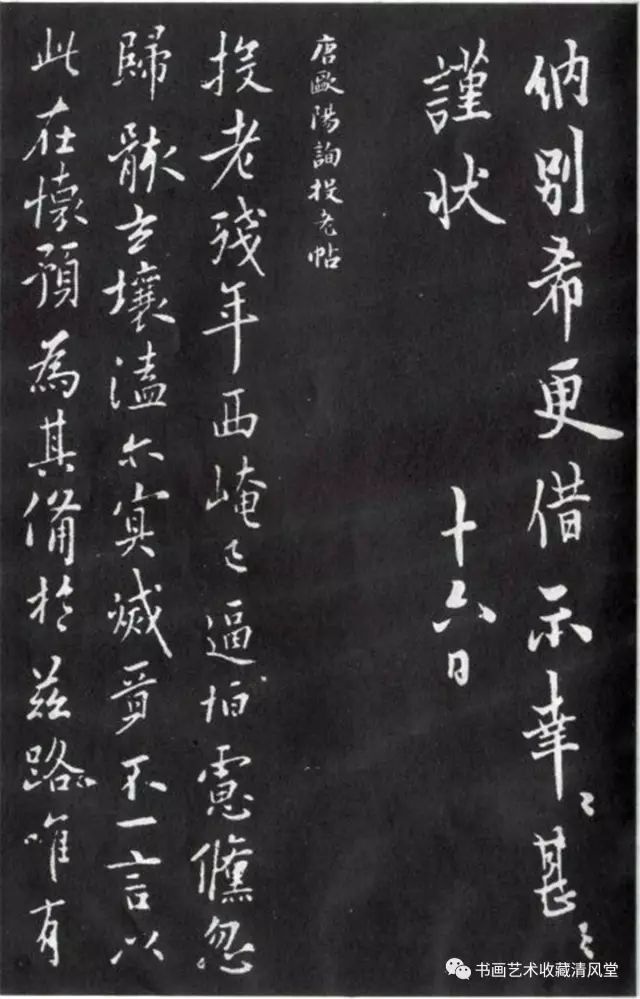 納別希更借示幸〻甚〻
謹状 十六日
唐歐陽詢投老帖
投老殘年西崦已逼怕慮儻忽
歸骸玄壤溘尒冥滅不一言以
此在懷預為其備於茲路唯有
书画艺术收藏清风堂